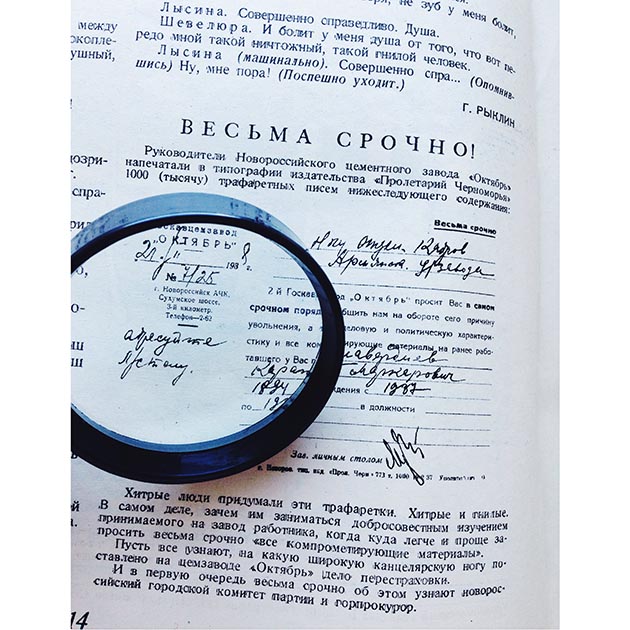 не зуб у меня болит,
Лысина. Совершенно справедливо. Душа.
Шевелюра. И болит у меня душа от того, что вот пе-
редо мной такой ничтожный, такой гнилой человек.
Лысина (машинально). Совершенно спра... (Опомнив-
шись) Ну, мне пора! (Поспешно уходит.)
Г. РЫКЛИН
между
ушный,
ВЕСЬМА СРОЧНО!
Руководители Новороссийского цементного завода «Октябрь»
напечатали в типографии издательства «Пролетарий Черноморья»
1000 (тысячу) трафаретных писем нижеследующего содержания:
Весьма срочно
"ОКТЯБРЬ"
193
№ 7/25
г. Новороссийск АЧК.
Сухумское шоссе.
3-й километр.
Телефон—2-62
адресуйте
Нку отдел. Кадров
2-й Госкав од „Октябрь" просит Вас в самом
срочном поряд общить нам на обороте сего причину
увольнения, а т деловую и политическую характери-
стику и все ком ирующие материалы на ранее рабо-
тавшего у Вас г
ждения с 1937
по в должности
Зав. личным столом
Хитрые люди придумали эти трафаретки. Хитрые и гнилые.
В самом деле, зачем им заниматься добросовестным изучением
принимаемого на завод работника, когда куда легче и проще за-
просить весьма срочно «все компрометирующие материалы».
Пусть все узнают, на какую широкую канцелярскую ногу по-
ставлено на цемзаводе «Октябрь» дело перестраховки.
И в первую очередь весьма срочно об этом узнают новорос-
сийский городской комитет партии и горпрокурор.
14